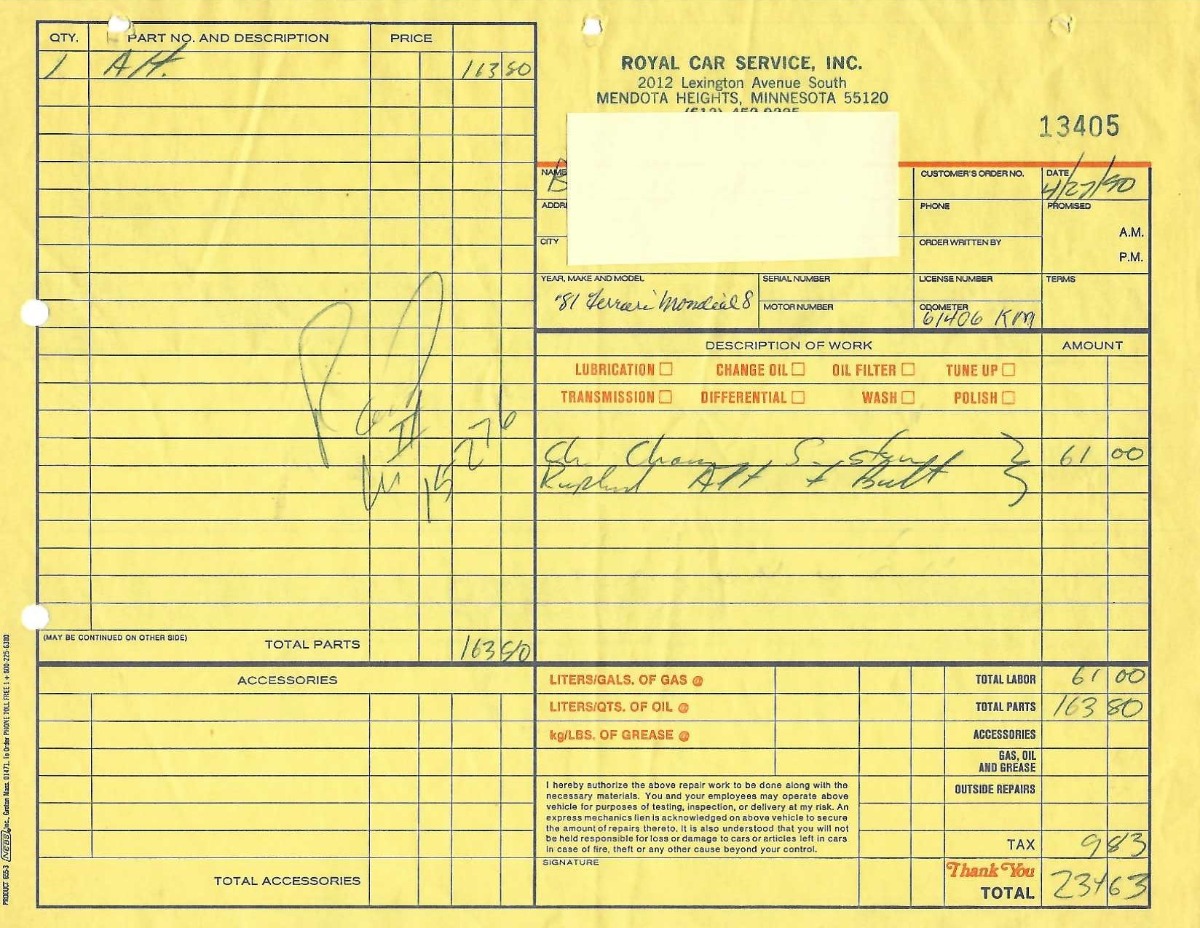 QTY. PART NO. AND DESCRIPTION PRICE
1 Alt. 163 80
(MAY BE CONTINUED ON OTHER SIDE) TOTAL PARTS 163 80
ACCESSORIES
TOTAL ACCESSORIES
ROYAL CAR SERVICE, INC.
2012 Lexington Avenue South
MENDOTA HEIGHTS, MINNESOTA 55120
13405
NAME
CUSTOMER'S ORDER NO. DATE 4/27/90
PHONE PROMISED
A.M.
CITY ORDER WRITTEN BY
P.M.
YEAR, MAKE AND MODEL SERIAL NUMBER LICENSE NUMBER TERMS
'81 Ferrari Mondial 8
MOTOR NUMBER ODOMETER
61406 KM
DESCRIPTION OF WORK AMOUNT
LUBRICATION CHANGE OIL OIL FILTER TUNE UP
TRANSMISSION DIFFERENTIAL WASH POLISH
Ch. Charg System 61 00
Alt + Belt
LITERS/GALS. OF GAS @ TOTAL LABOR 61 00
LITERS/QTS. OF OIL @ TOTAL PARTS 163 80
kg/LBS. OF GREASE @ ACCESSORIES
GAS, OIL
AND GREASE
OUTSIDE REPAIRS
I hereby authorize the above repair work to be done along with the
necessary materials. You and your employees may operate above
vehicle for purposes of testing, inspection, or delivery at my risk. An
express mechanics lien is acknowledged on above vehicle to secure
the amount of repairs thereto. It is also understood that you will not
be held responsible for loss or damage to cars or articles left in cars
in case of fire, theft or any other cause beyond your control.
TAX 9 83
SIGNATURE
Thank You
TOTAL 234 63